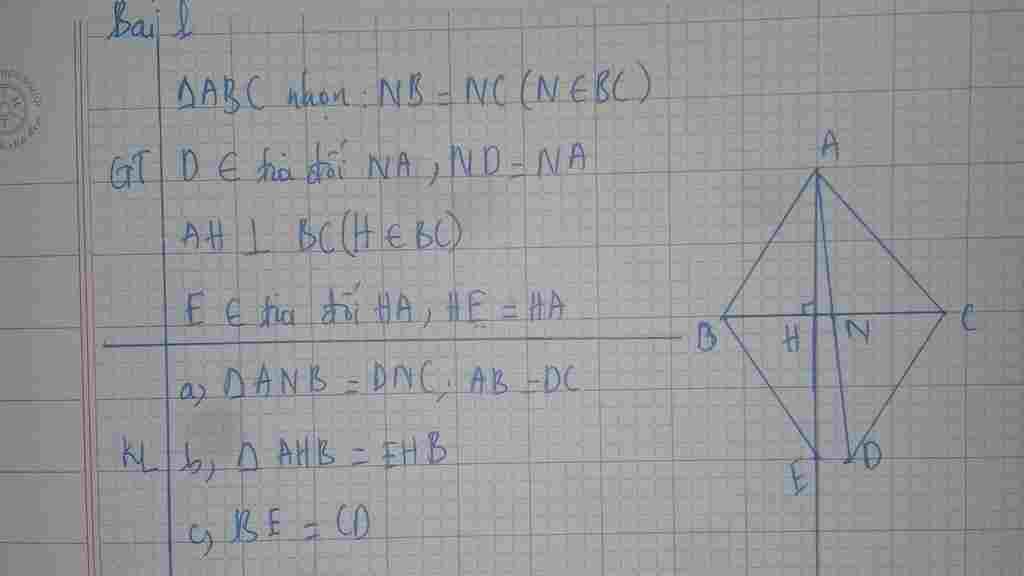 Bài 1
ΔABC nhọn: NB = NC (N ∈ BC)
GT D ∈ tia đối NA, ND = NA
AH ⊥ BC (H ∈ BC)
E ∈ tia đối HA, HE = HA
a, ΔANB = DNC, AB = DC
KL b, Δ AHB = EHB
c, BE = CD
A
B H N C
E D